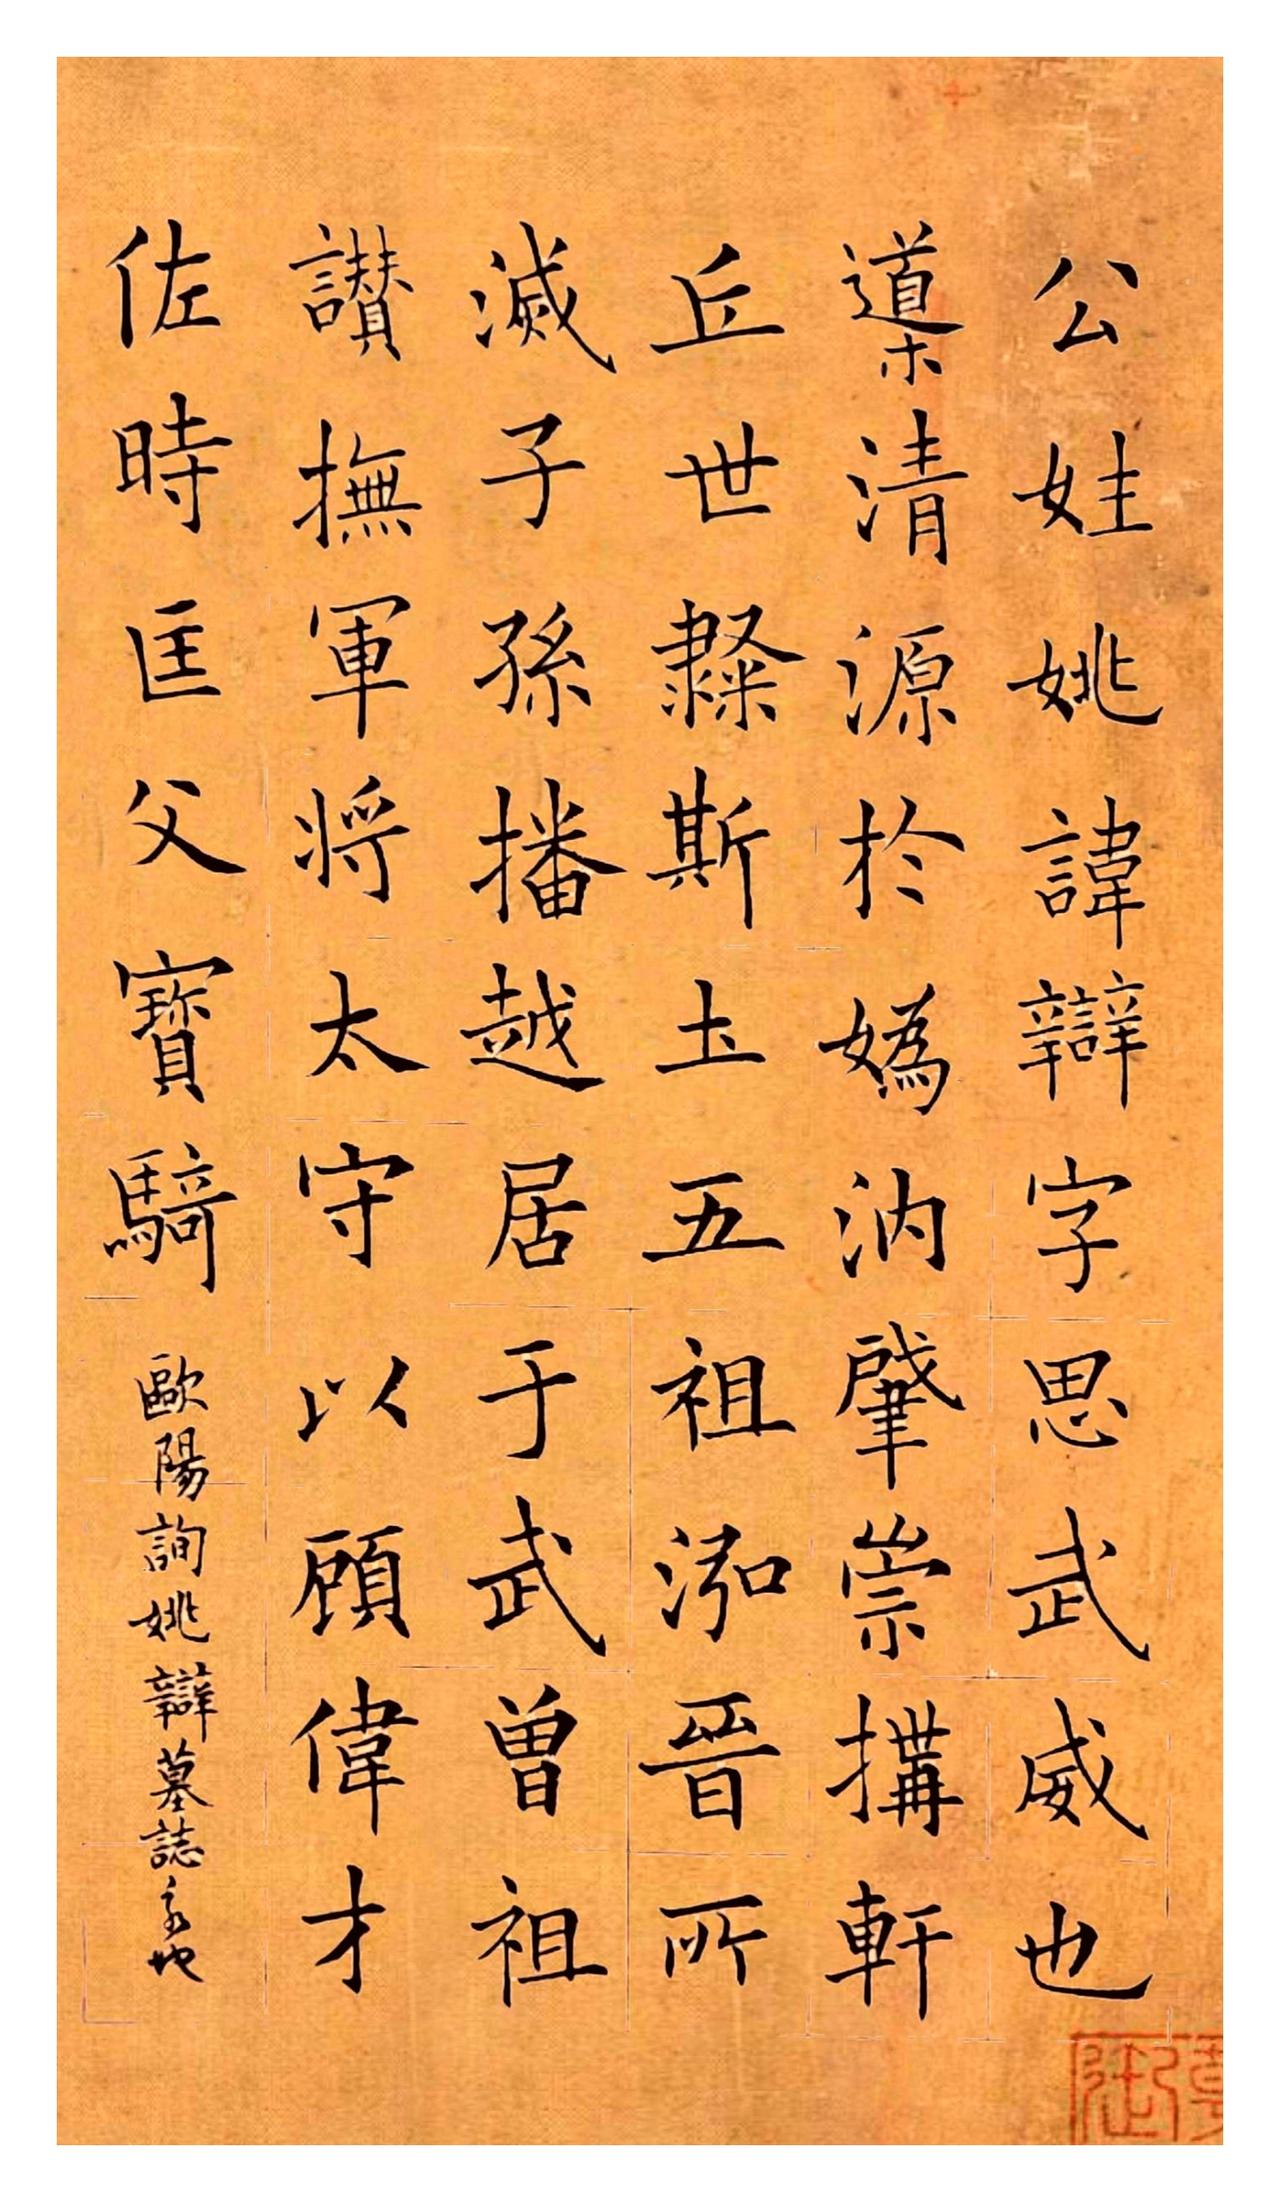 公姓姚諱辯字思武威也
導清源於嬀汭肇崇搆軒
丘世隸斯土五祖泓晉所
滅子孫播越居于武曾祖
讃撫軍將太守以顧偉才
佐時匡父寶騎
歐陽詢姚辯墓誌